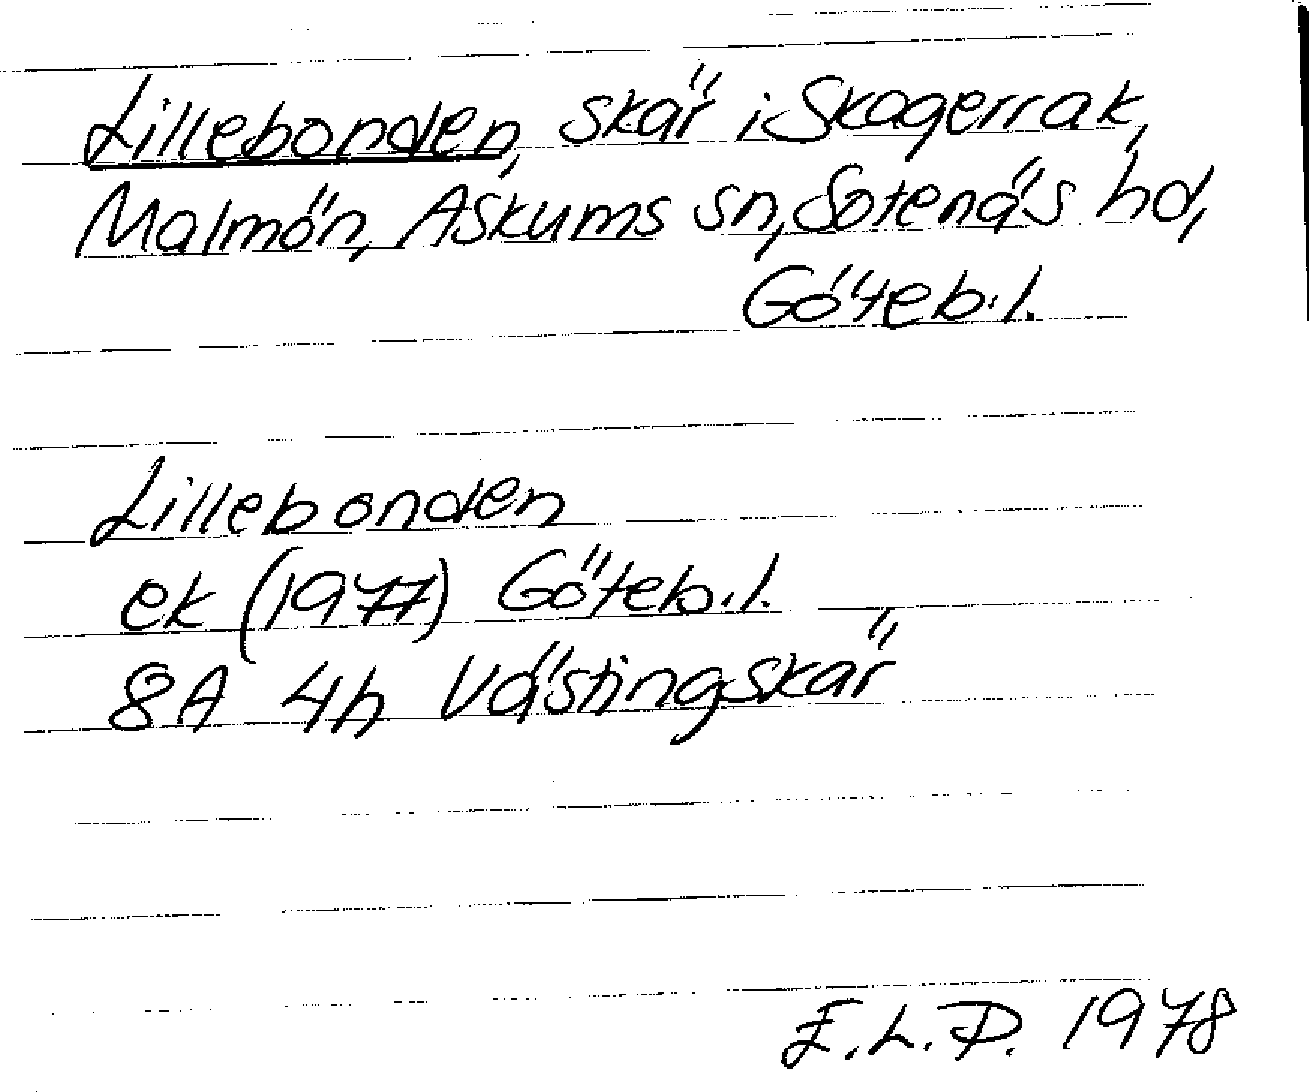 Lillebonden, skär i Skagerrak,
Malmön, Askums sn, Sotenäs hd,
Göteb.l.
Lillebonden
ek (1977) Göteb.l.
8A 4h Västingskär
E.L.D. 1978